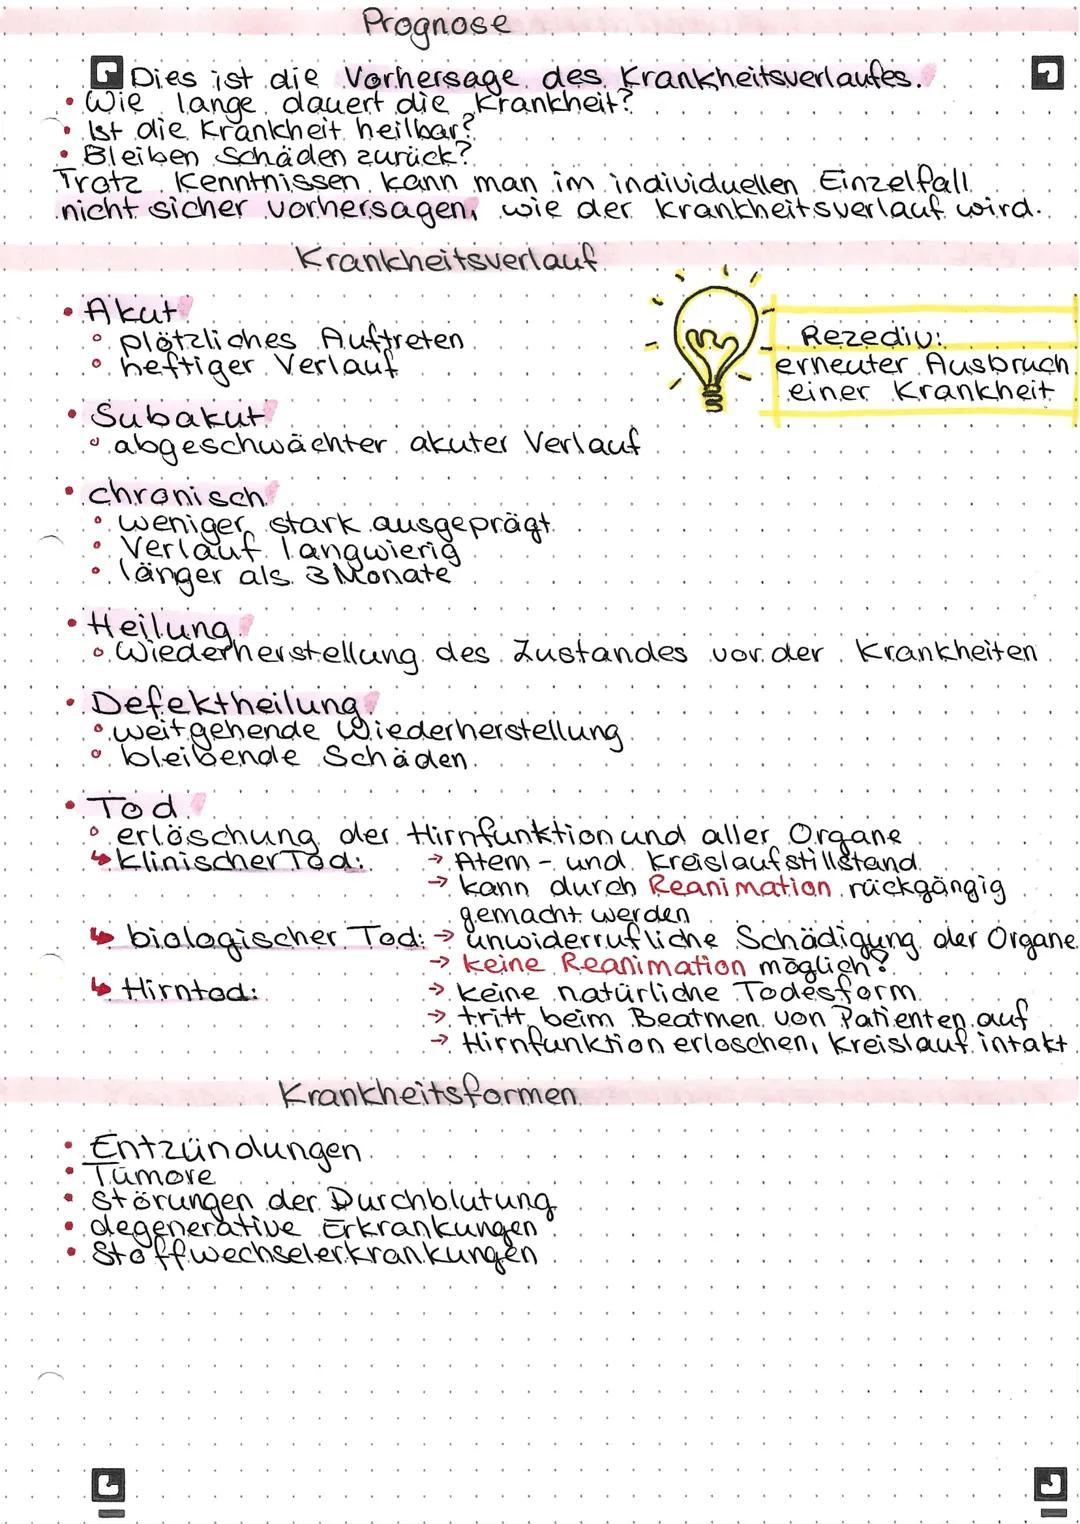 Prognose
Dies ist die Vorhersage des Krankheitsverlaufes.
• Wie lange dauert die Krankheit?
• Ist die Krankheit heilbar?
• Bleiben Schäden zurück?
Trotz Kenntnissen kann man im individuellen Einzelfall
nicht sicher vorhersagen, wie der Krankheitsverlauf wird.
Krankheitsverlauf
• Akut
◦ plötzliches Auftreten
◦ heftiger Verlauf
Rezediv:
erneuter Ausbruch
einer Krankheit
• Subakut
◦ abgeschwächter akuter Verlauf
• chronisch
◦ weniger stark ausgeprägt
◦ Verlauf langwierig
◦ länger als 3 Monate
• Heilung
◦ Wiederherstellung des Zustandes vor der Krankheiten
• Defektheilung
◦ weitgehende Wiederherstellung
◦ bleibende Schäden
• Tod
◦ erlöschung der Hirnfunktion und aller Organe
↳ klinischer Tod: → Atem- und Kreislaufstillstand
→ kann durch Reanimation rückgängig
gemacht werden
↳ biologischer Tod: → unwiderrufliche Schädigung der Organe
→ keine Reanimation möglich!
↳ Hirntod: → keine natürliche Todesform
→ tritt beim Beatmen von Patienten auf
→ Hirnfunktion erloschen, Kreislauf intakt
Krankheitsformen
• Entzündungen
• Tumore
• Störungen der Durchblutung
• degenerative Erkrankungen
• Stoffwechselerkrankungen